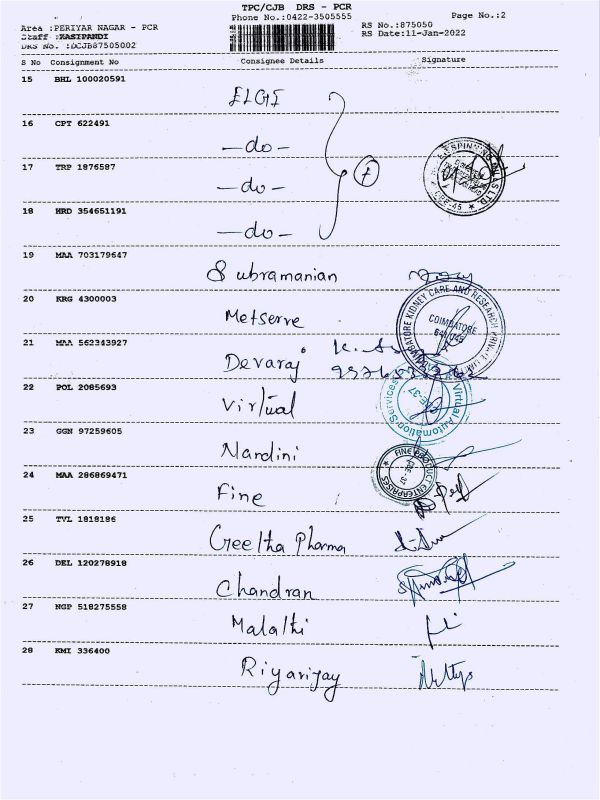 TPC/CJB DRS - PCR
Phone No.:0422-3505555 Page No.:2
Area :PERIYAR NAGAR - PCR RS No.:875050
Staff :KASIPANDI RS Date:11-Jan-2022
DRS No. :DCJB87505002
S No Consignment No Consignee Details Signature
15 BHL 100020591
ELGI
16 CPT 622491
-do-
17 TRP 1876587
-do-
18 HRD 354651191
-do-
19 MAA 703179647
Subramanian
20 KRG 4300003
Metserve
COIMBATORE KIDNEY CARE AND RESEARCH
COIMBATORE
21 MAA 562343927
Devaraj
22 POL 2085693
Virtual
Virtual Automation Services
CBE-37
23 GGN 97259605
Nandini
24 MAA 286869471
Fine
FINE PRODUCT ENTERPRISES
CBE-37
25 TVL 1818186
Geetha Pharma
26 DEL 120278918
Chandran
27 NGP 518275558
Malathi
28 KMI 336400
Riyarijay